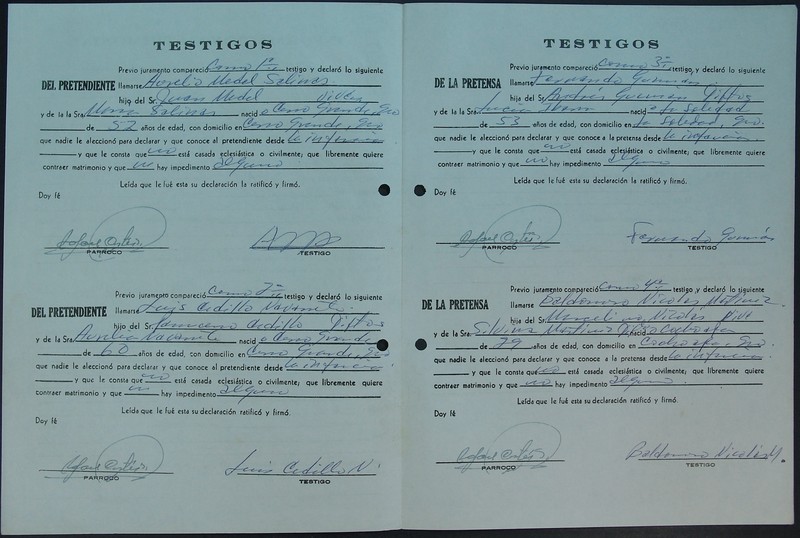 TESTIGOS
Previo juramento compareció Como 1er testigo y declaró lo siguiente
DEL PRETENDIENTE llamarse Aurelio Medel Salinas
hijo del Sr. Juan Medel
y de la Sra. Salinas nació a Cerro Grande, Gro
de 52 años de edad, con domicilio en Cerro Grande, Gro
que nadie le aleccionó para declarar y que conoce al pretendiente desde la infancia
y que le consta que no está casada eclesiástica o civilmente; que libremente quiere
contraer matrimonio y que no hay impedimento alguno
Leída que le fué esta su declaración la ratificó y firmó.
Doy fé
PARROCO
TESTIGO
Previo juramento compareció Como 2o testigo y declaró lo siguiente
DEL PRETENDIENTE llamarse Luis Cedillo Navarrete
hijo del Sr. Cedillo
y de la Sra. Aurelia Navarrete nació a Cerro Grande
de 60 años de edad, con domicilio en Cerro Grande, Gro
que nadie le aleccionó para declarar y que conoce al pretendiente desde la infancia
y que le consta que no está casada eclesiástica o civilmente; que libremente quiere
contraer matrimonio y que no hay impedimento alguno
Leída que le fué esta su declaración ratificó y firmó.
Doy fé
Luis Cedillo N.
PARROCO
TESTIGO
TESTIGOS
Previo juramento compareció como 3er testigo, y declaró lo siguiente
DE LA PRETENSA llamarse Fernando Guzmán
hija del Sr. Andrés Guzmán
y de la Sra. nació a la Soledad
de 53 años de edad, con domicilio en la Soledad, Gro.
que nadie le aleccionó para declarar y que conoce a la pretensa desde la infancia
y que le consta que no está casada eclesiástica o civilmente; que libremente quiere
contraer matrimonio y que no hay impedimento alguno
Leída que le fué esta su declaración la ratificó y firmó.
Doy fé
Fernando Guzmán
PARROCO
TESTIGO
Previo juramento compareció como 4o testigo, y declaró lo siguiente
DE LA PRETENSA llamarse Baldomero Nicolás Martínez
hijo del Sr. Marcelino Nicolás
y de la Sra. Silvina Martínez nació
de 79 años de edad, con domicilio en
que nadie le aleccionó para declarar y que conoce a la pretensa desde la infancia
y que le consta que no está casada eclesiástica o civilmente; que libremente quiere
contraer matrimonio y que no hay impedimento alguno
Leída que le fué esta su declaración ratificó y firmó.
Doy fé
Baldomero Nicolás M.
PARROCO
TESTIGO